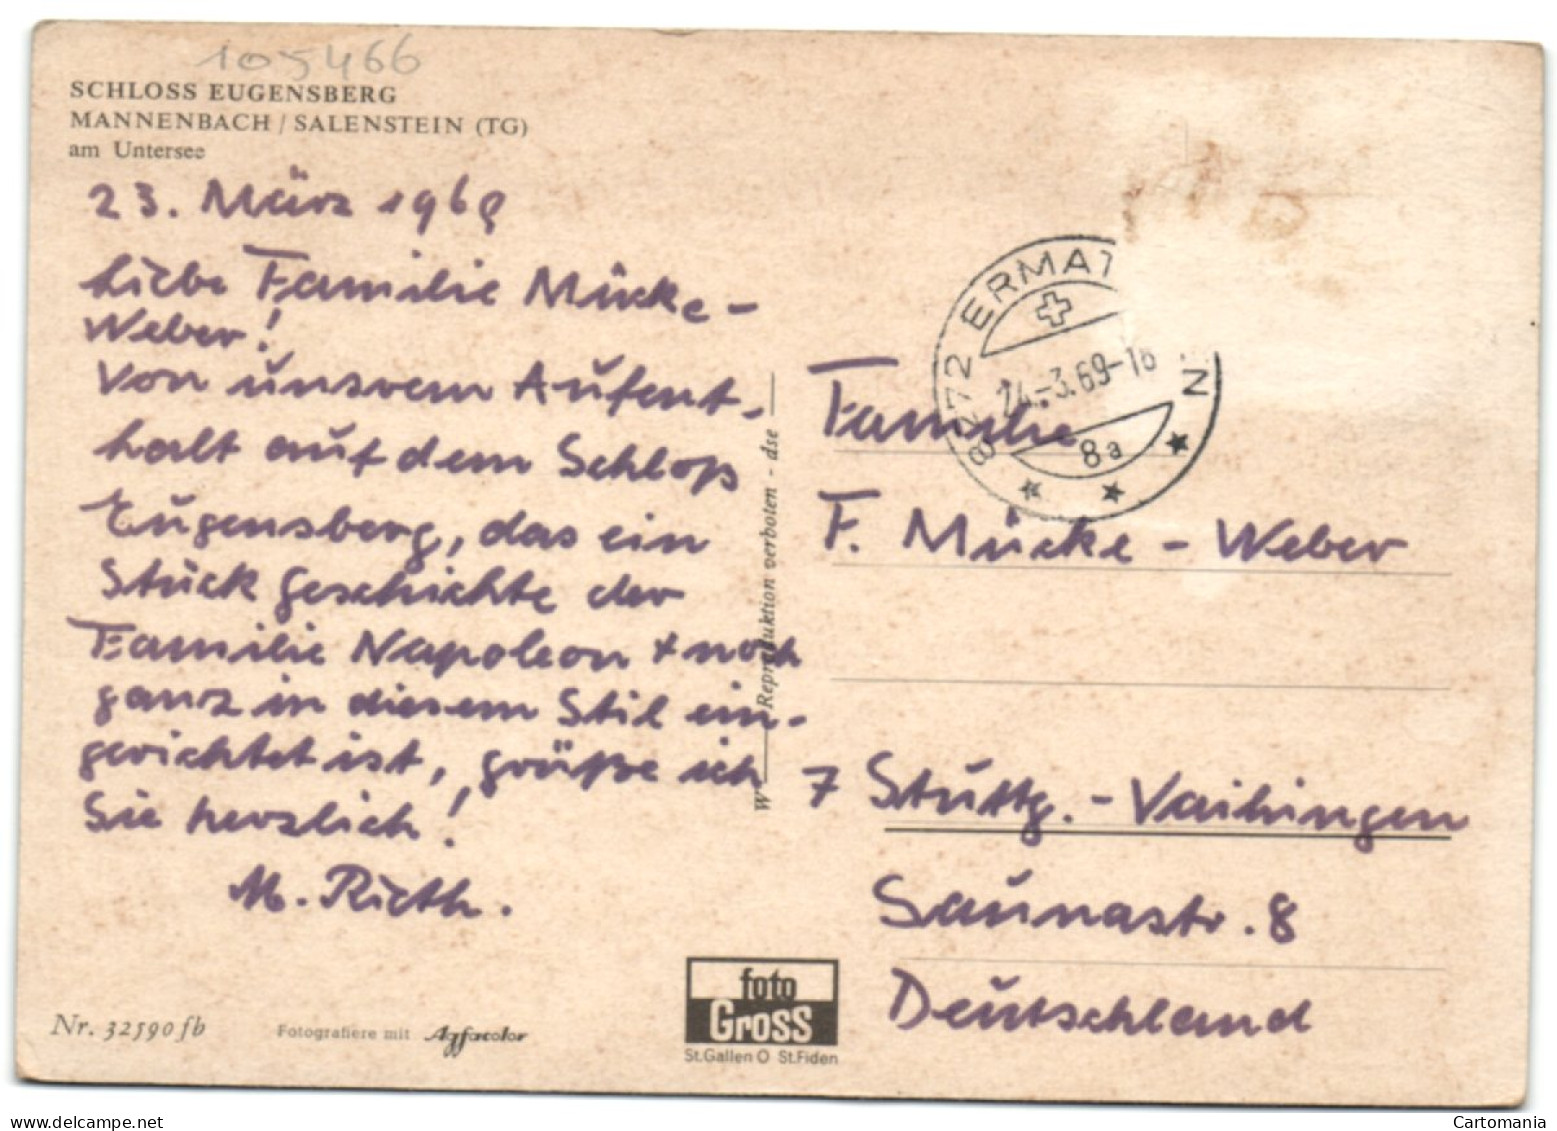 105466
SCHLOSS EUGENSBERG
MANNENBACH / SALENSTEIN (TG)
am Untersee
23. März 1969
Liebe Familie Mücke-
Weber!
Von unsrem Aufent-
halt auf dem Schloß
Eugensberg, das ein
Stück Geschichte der
Familie Napoleon + noch
ganz in diesem Stil ein-
gerichtet ist, grüße ich
Sie herzlich!
M. Rieth.
Nr. 32590 fb
Fotografiere mit Agfacolor
W Reproduktion verboten - dse
foto
Gross
St.Gallen O St.Fiden
8272 ERMAT N
24.-3.69-18
8a
Familie
F. Mücke - Weber
7 Stuttg. - Vaihingen
Saunastr. 8
Deutschland
Cartomania